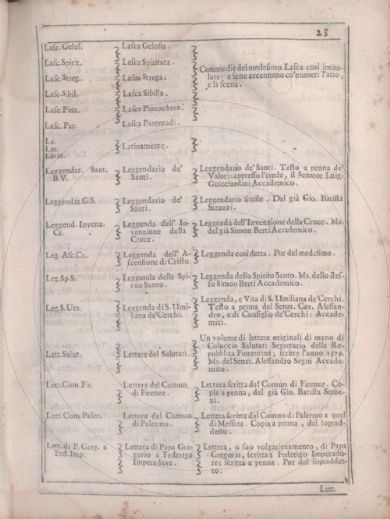 23
Lasc. Gelos. Lasca Gelosia.
Lasc. Spirit. Lasca Spiritata.
Lasc. Streg. Lasca Strega.
Lasc. Sibil. Lasca Sibilla.
Lasc. Pinz. Lasca Pinzochera.
Lasc. Par. Lasca Parentadi.
Commedie del medesimo Lasca così intito-
late: e se ne accennano co' numeri l'atto,
e la scena.
La.
Lat.
Latin.
Latinamente.
Leggendar. Sant.
B.V.
Leggendario de'
Santi.
Leggendario de' Santi. Testo a penna de'
Valori: appresso l'erede, il Senator Luigi
Guicciardini Accademico.
Leggendar. G.S.
Leggendario de'
Santi.
Leggendario simile. Del già Gio. Batista
Strozzi.
Leggend. Invenz.
Cr.
Leggenda dell' In-
venzione della
Croce.
Leggenda dell'Invenzione della Croce. Ms.
del già Simon Berti Accademico.
Leg. Asc. Cr.
Leggenda dell' A-
scensione di Cristo.
Leggenda così detta. Pur del medesimo.
Leg. Sp. S.
Leggenda dello Spi-
rito Santo.
Leggenda dello Spirito Santo. Ms. dello stes-
so Simon Berti Accademico.
Leg. S. Um.
Leggenda di S. Umi-
liana de'Cerchi.
Leggenda, e Vita di S. Umiliana de'Cerchi.
Testo a penna del Senat. Cav. Alessan-
dro, e di Consiglio de'Cerchi: Accade-
mici.
Lett. Salut.
Lettere del Salutati.
Un volume di lettere originali di mano di
Coluccio Salutati Segretario della Re-
pubblica Fiorentina; scritte l'anno 1379.
Ms. del Senat. Alessandro Segni Accade-
mico.
Lett. Com. Fir.
Lettera del Comun
di Firenze.
Lettera scritta dal Comun di Firenze. Co-
pia a penna, del già Gio. Batista Stroz-
zi.
Lett. Com. Paler.
Lettera del Comun
di Palermo.
Lettera scritta dal Comun di Palermo a quel
di Messina. Copia a penna, del soprad-
detto.
Lett. di P. Greg. a
Fed. Imp.
Lettera di Papa Gre-
gorio a Federigo
Imperadore.
Lettera, o suo volgarizzamento, di Papa
Gregorio, scritta a Federigo Imperado-
re; scritta a penna. Pur del sopraddet-
to.
Lett.